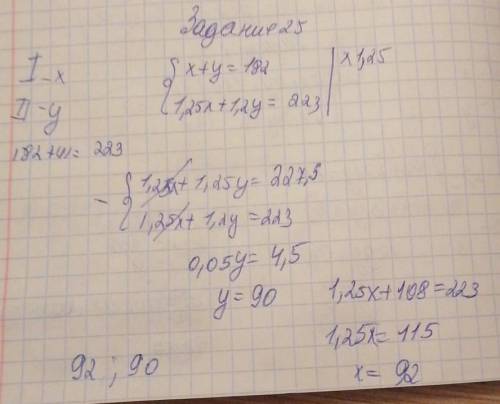 Задание 25
I - x
II - y
182+41= 223
{ x+y = 182 | x 1,25
{ 1,25x+1,2y = 223
- { 1,25x + 1,25y = 227,5
{ 1,25x + 1,2y = 223
0,05y = 4,5
y = 90
1,25x+108 = 223
1,25x = 115
x = 92
92 ; 90